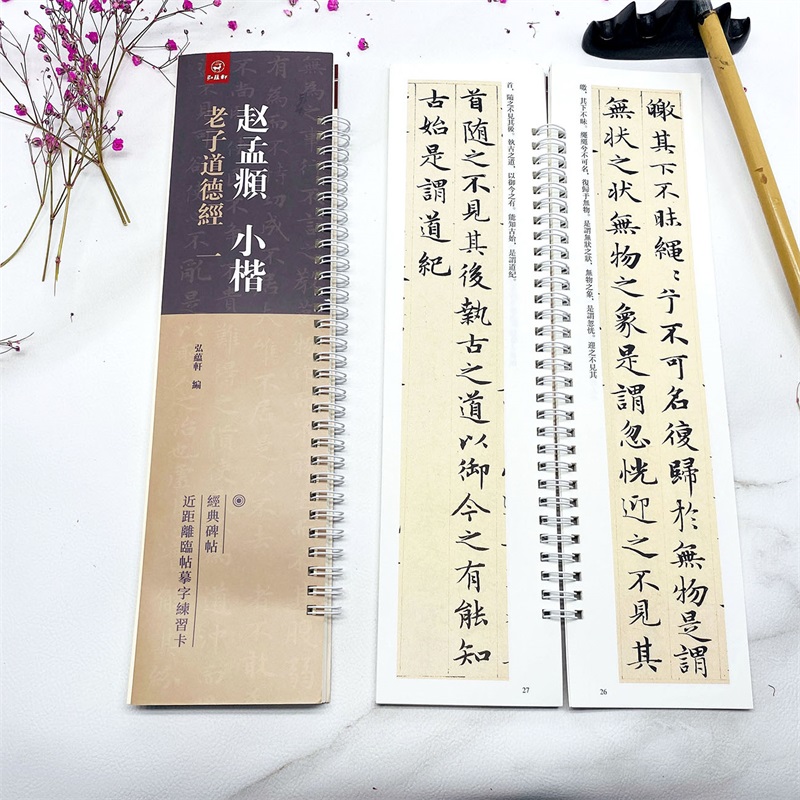 弘蕴軒
赵孟頫 小楷
老子道德經 一
弘蘊軒 編
經典碑帖
近距離臨帖摹字練習卡
皦其下不昧繩〻兮不可名復歸於無物是謂
無狀之狀無物之象是謂忽恍迎之不見其
皦,其下不昧。繩繩兮不可名,復歸于無物。是謂無狀之狀,無物之象,是謂忽恍。迎之不見其
26
首,隨之不見其後。執古之道,以御今之有。能知古始,是謂道紀。
首隨之不見其後執古之道以御今之有能知
古始是謂道紀
27